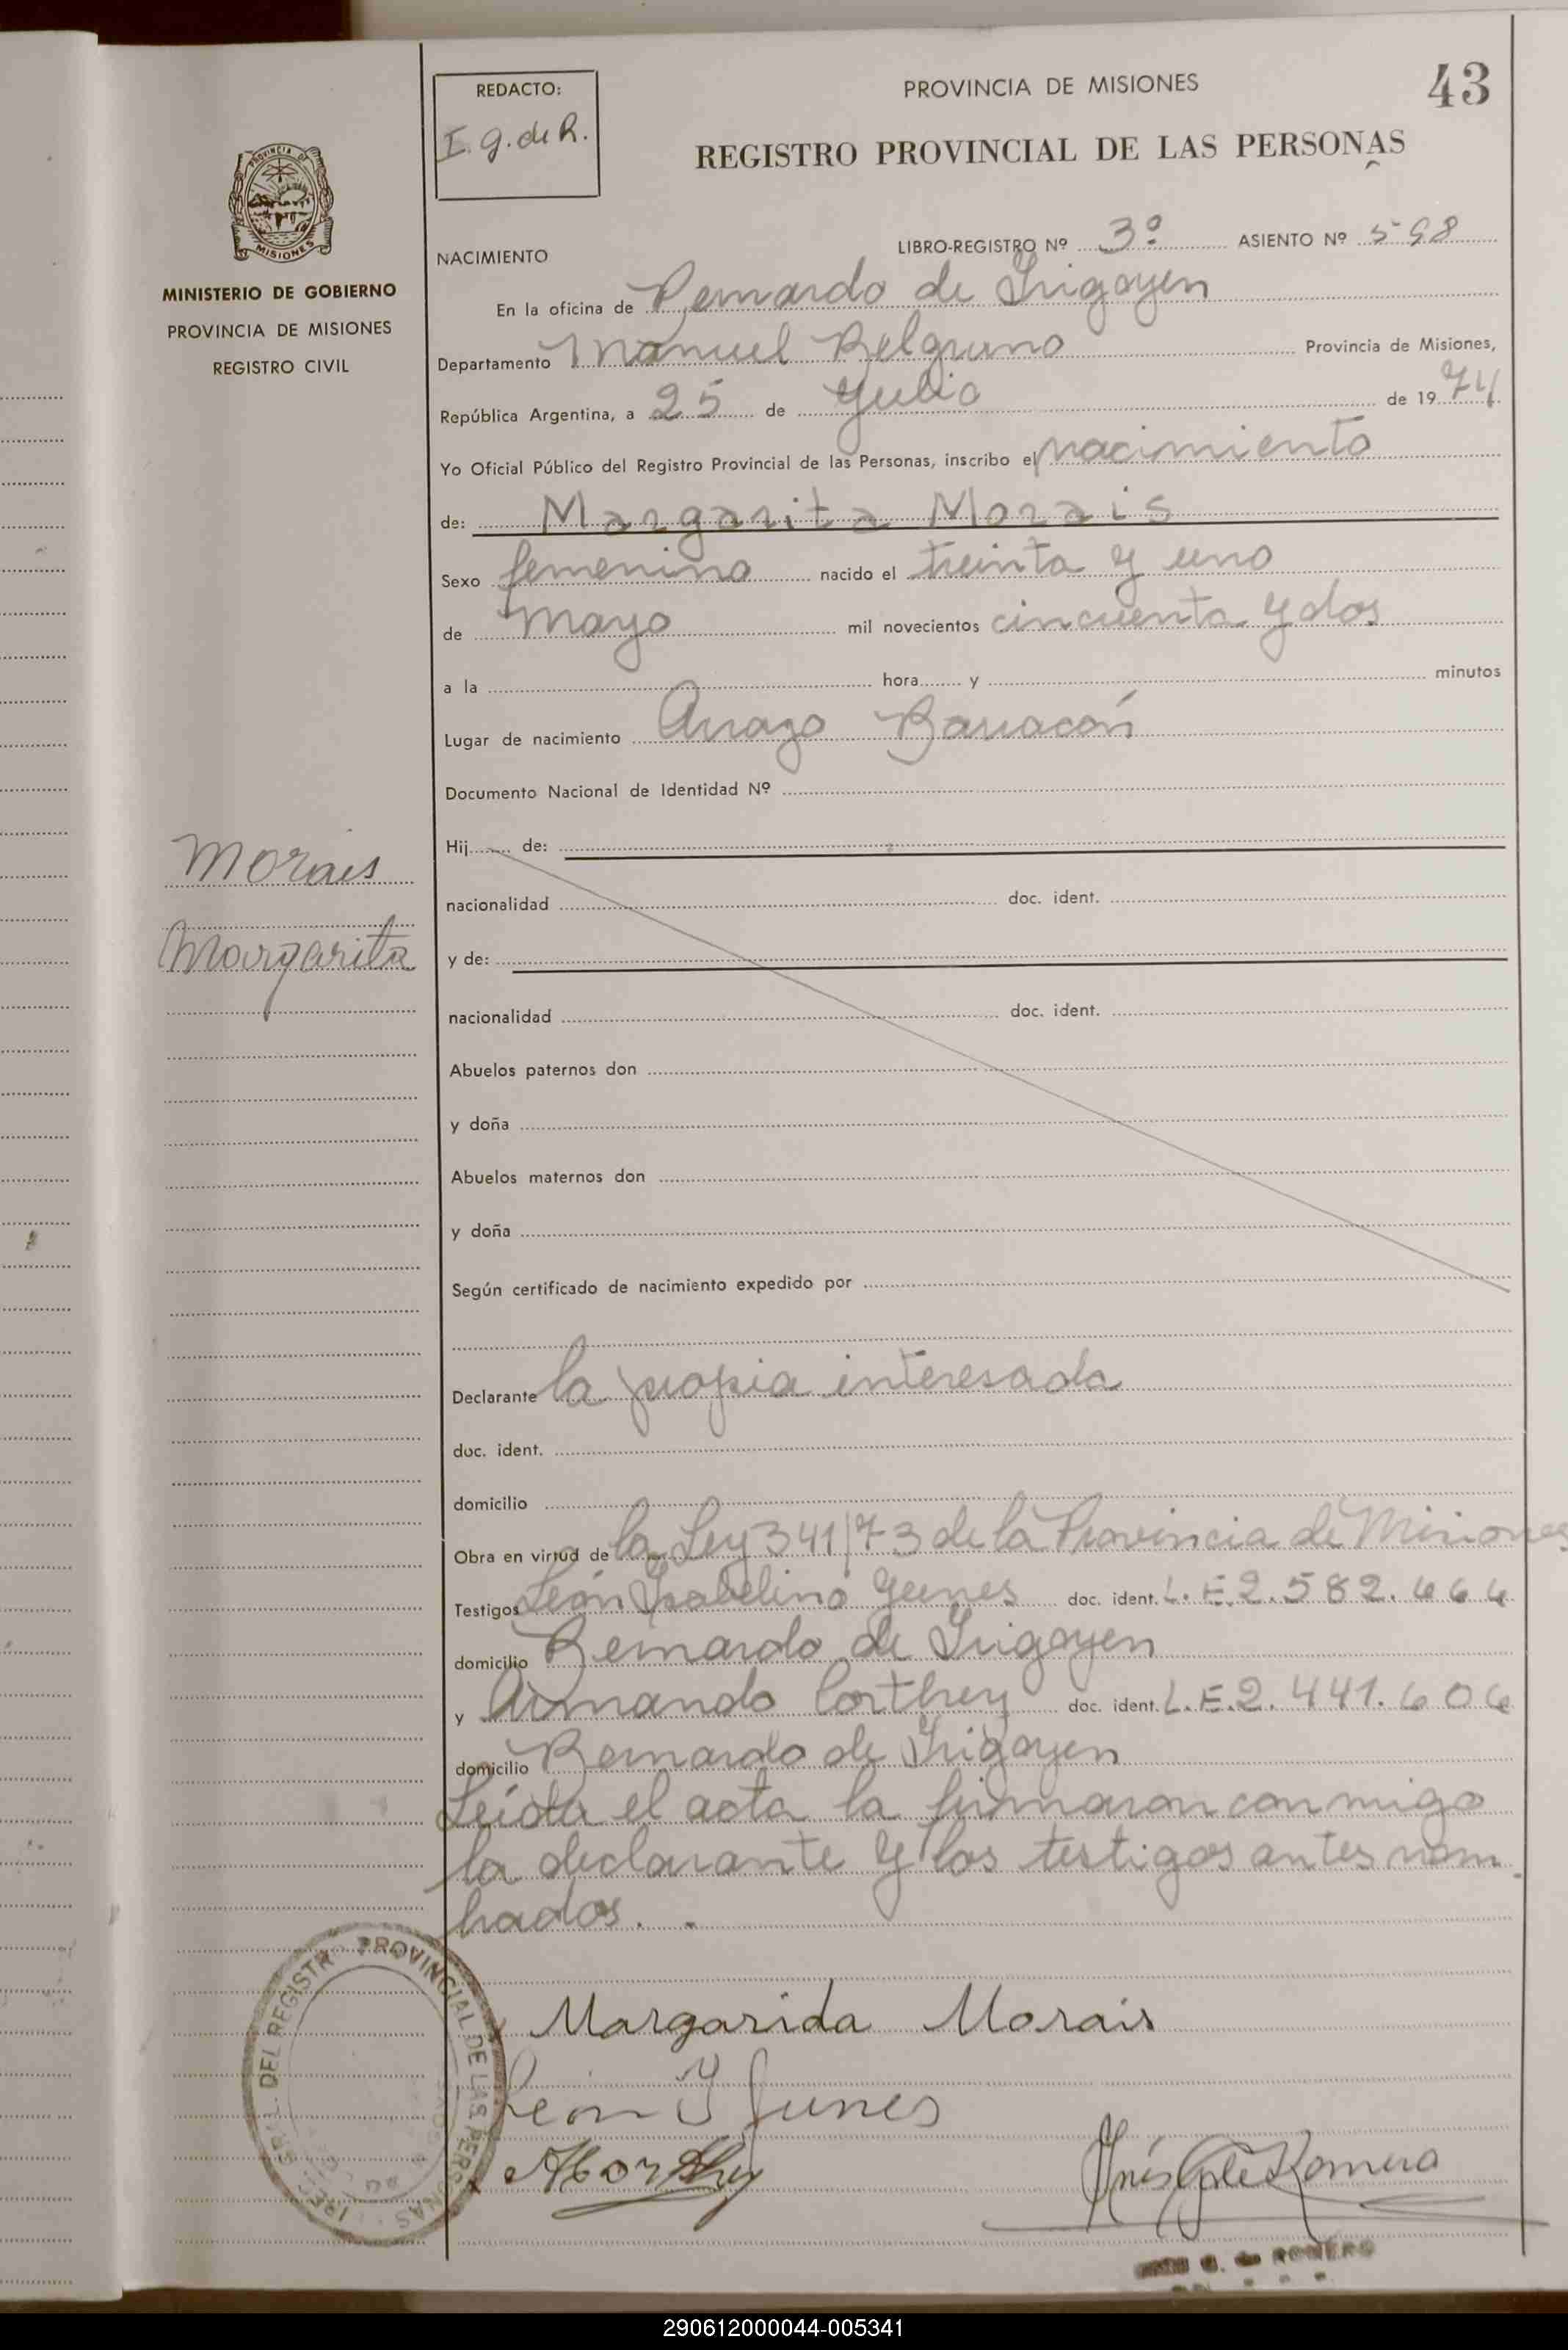 43
REDACTO:
I. g. de R.
PROVINCIA DE MISIONES
REGISTRO PROVINCIAL DE LAS PERSONAS
PROVINCIA DE
MISIONES
MINISTERIO DE GOBIERNO
PROVINCIA DE MISIONES
REGISTRO CIVIL
LIBRO-REGISTRO Nº 3º ASIENTO Nº 598
NACIMIENTO
En la oficina de Bernardo de Irigoyen
Departamento Manuel Belgrano Provincia de Misiones,
República Argentina, a 25 de Julio de 1974
Yo Oficial Público del Registro Provincial de las Personas, inscribo el nacimiento
de: Margarita Morais
Sexo femenino nacido el treinta y uno
de Mayo mil novecientos cincuenta y dos
a la hora y minutos
Lugar de nacimiento Barracón
Documento Nacional de Identidad Nº
Hij de:
Morais
nacionalidad doc. ident.
Margarita
y de:
nacionalidad doc. ident.
Abuelos paternos don
y doña
Abuelos maternos don
y doña
Según certificado de nacimiento expedido por
Declarante la propia interesada
doc. ident.
domicilio
Obra en virtud de la Ley 341/73 de la Provincia de Misiones
Testigos León Isabelino doc. ident. L.E. 2.582.464
domicilio Bernardo de Irigoyen
y Armando Corthey doc. ident. L.E. 2.441.606
domicilio Bernardo de Irigoyen
Leída el acta la firmaron conmigo
la declarante y los testigos antes nom
brados.
Margarida Morais
León Y Junes
Inés G de Romero
G. de ROMERO
DEL REGISTR PROVINCIAL DE LAS PERSONAS
290612000044-005341